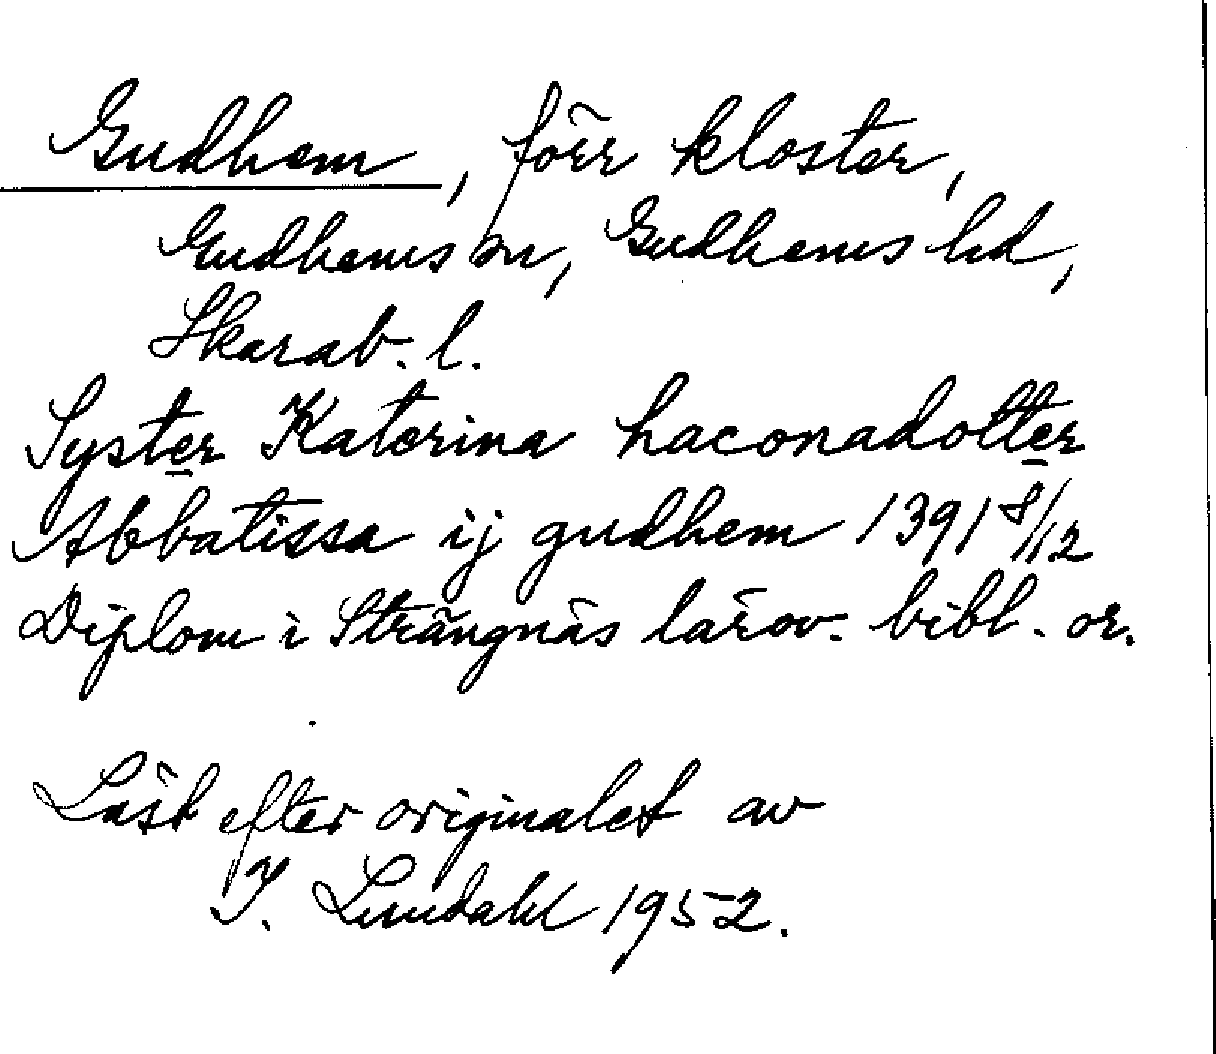 Gudhem, förr kloster,
Gudhems sn, Gudhems hd,
Skarab. l.
Syster Katerina haconadotter
Abbatissa ij gudhem 1391 8/12
Diplom i Strängnäs lärov. bibl. or.
Läst efter originalet av
I. Lundahl 1952.